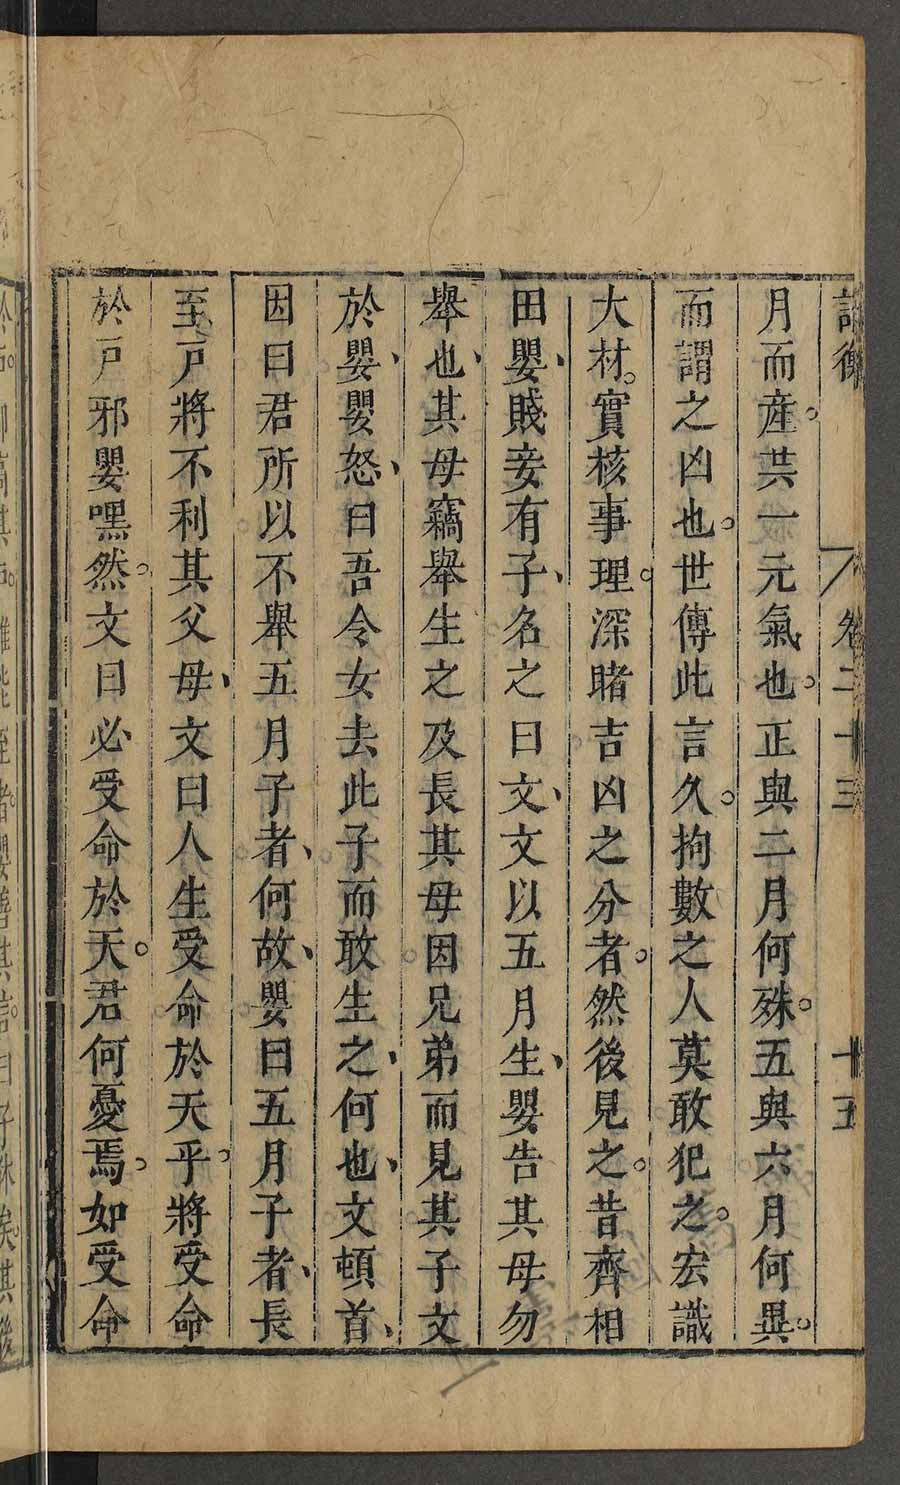 論衡 卷二十三 十五
月而産。其一元氣也。正與二月何殊。五與六月何異。
而謂之凶也。世傳此言久。拘數之人莫敢犯之。宏識
大材。實核事理。深睹吉凶之分者。然後見之。昔齊相
田嬰、賤妾有子、名之曰文、文以五月生、嬰告其母勿
舉也、其母竊舉生之及長其母因兄弟而見其子文
於嬰、嬰怒、曰吾令女去此子而敢生之、何也、文頓首、
因曰君所以不舉五月子者、何故、嬰曰五月子者、長
至戶將不利其父母、文曰人生受命於天乎。將受命
於戶邪嬰嘿然。文曰必受命於天。君何憂焉。如受命